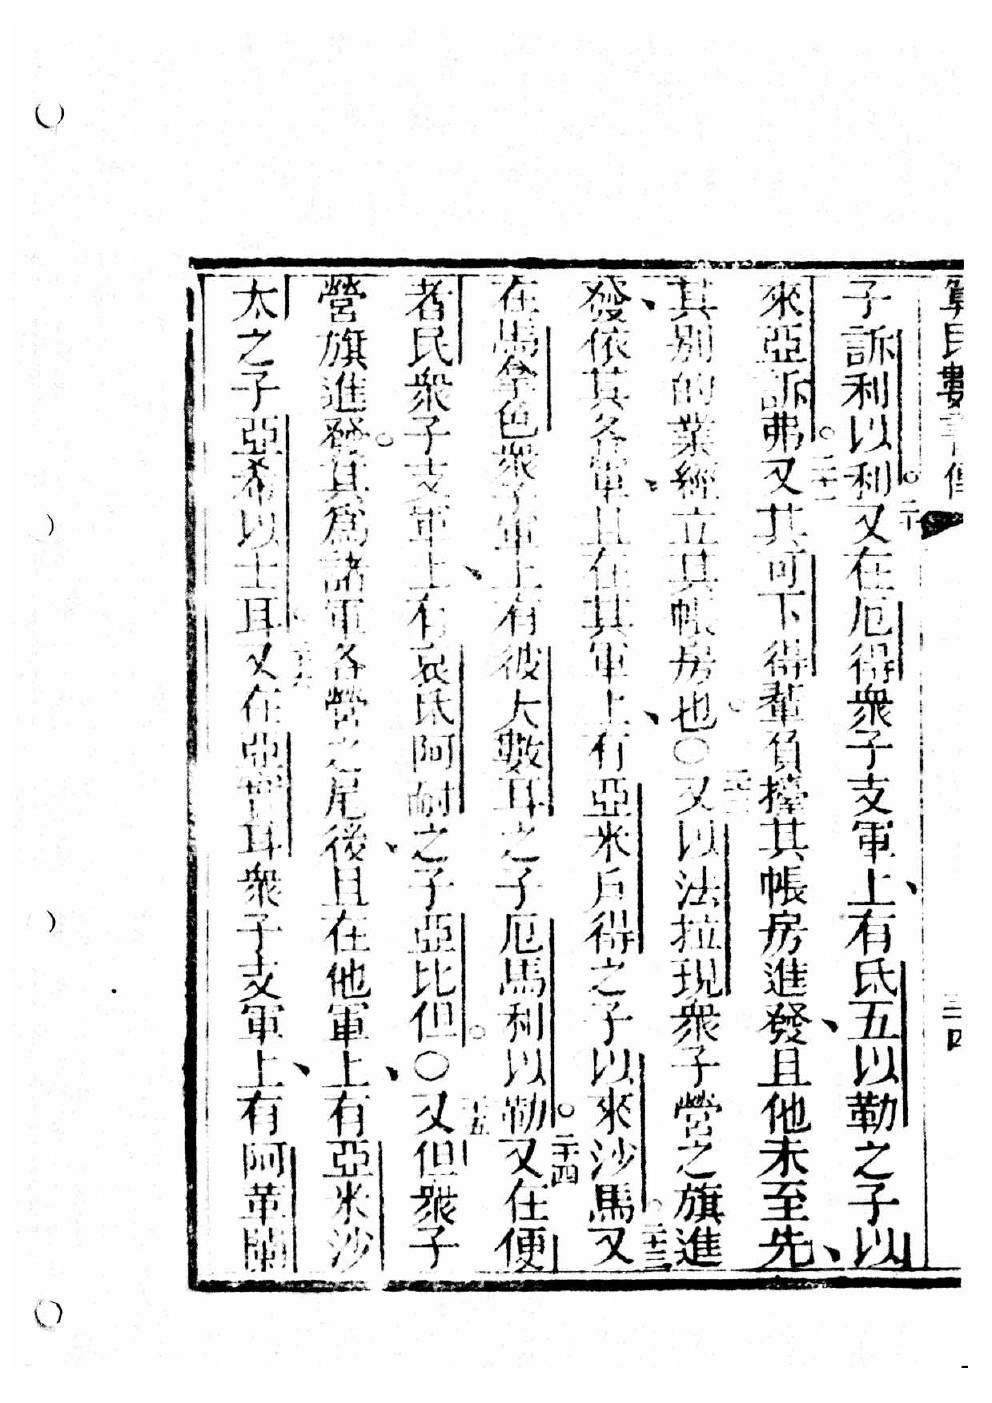 算民數書傳 三四
子訴利以利。二十又在厄得衆子支軍上、有氐五以勒之子以
來亞訴弗。二十一又其可下得輩負擡其帳房進發、且他未至先、
其別的業經立其帳房也。〇二十二又以法拉現衆子營之旗進
發、依其各軍、且在其軍上、有亞米戶得之子以來沙馬。二十三又
在馬拿色衆子軍上有彼大數耳之子厄馬利以勒。二十四又在便
者民衆子支軍上、有哀氐阿耐之子亞比但。〇二十五又但衆子
營旗進發。其為諸軍各營之尾後、且在他軍上、有亞米沙
太之子亞希以士耳。二十六又在亞實耳衆子支軍上、有阿革蘭